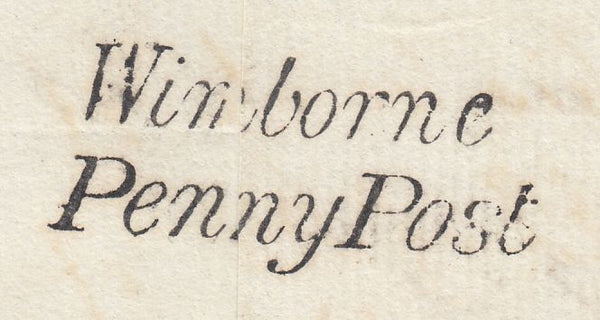 Wimborne
Penny Post